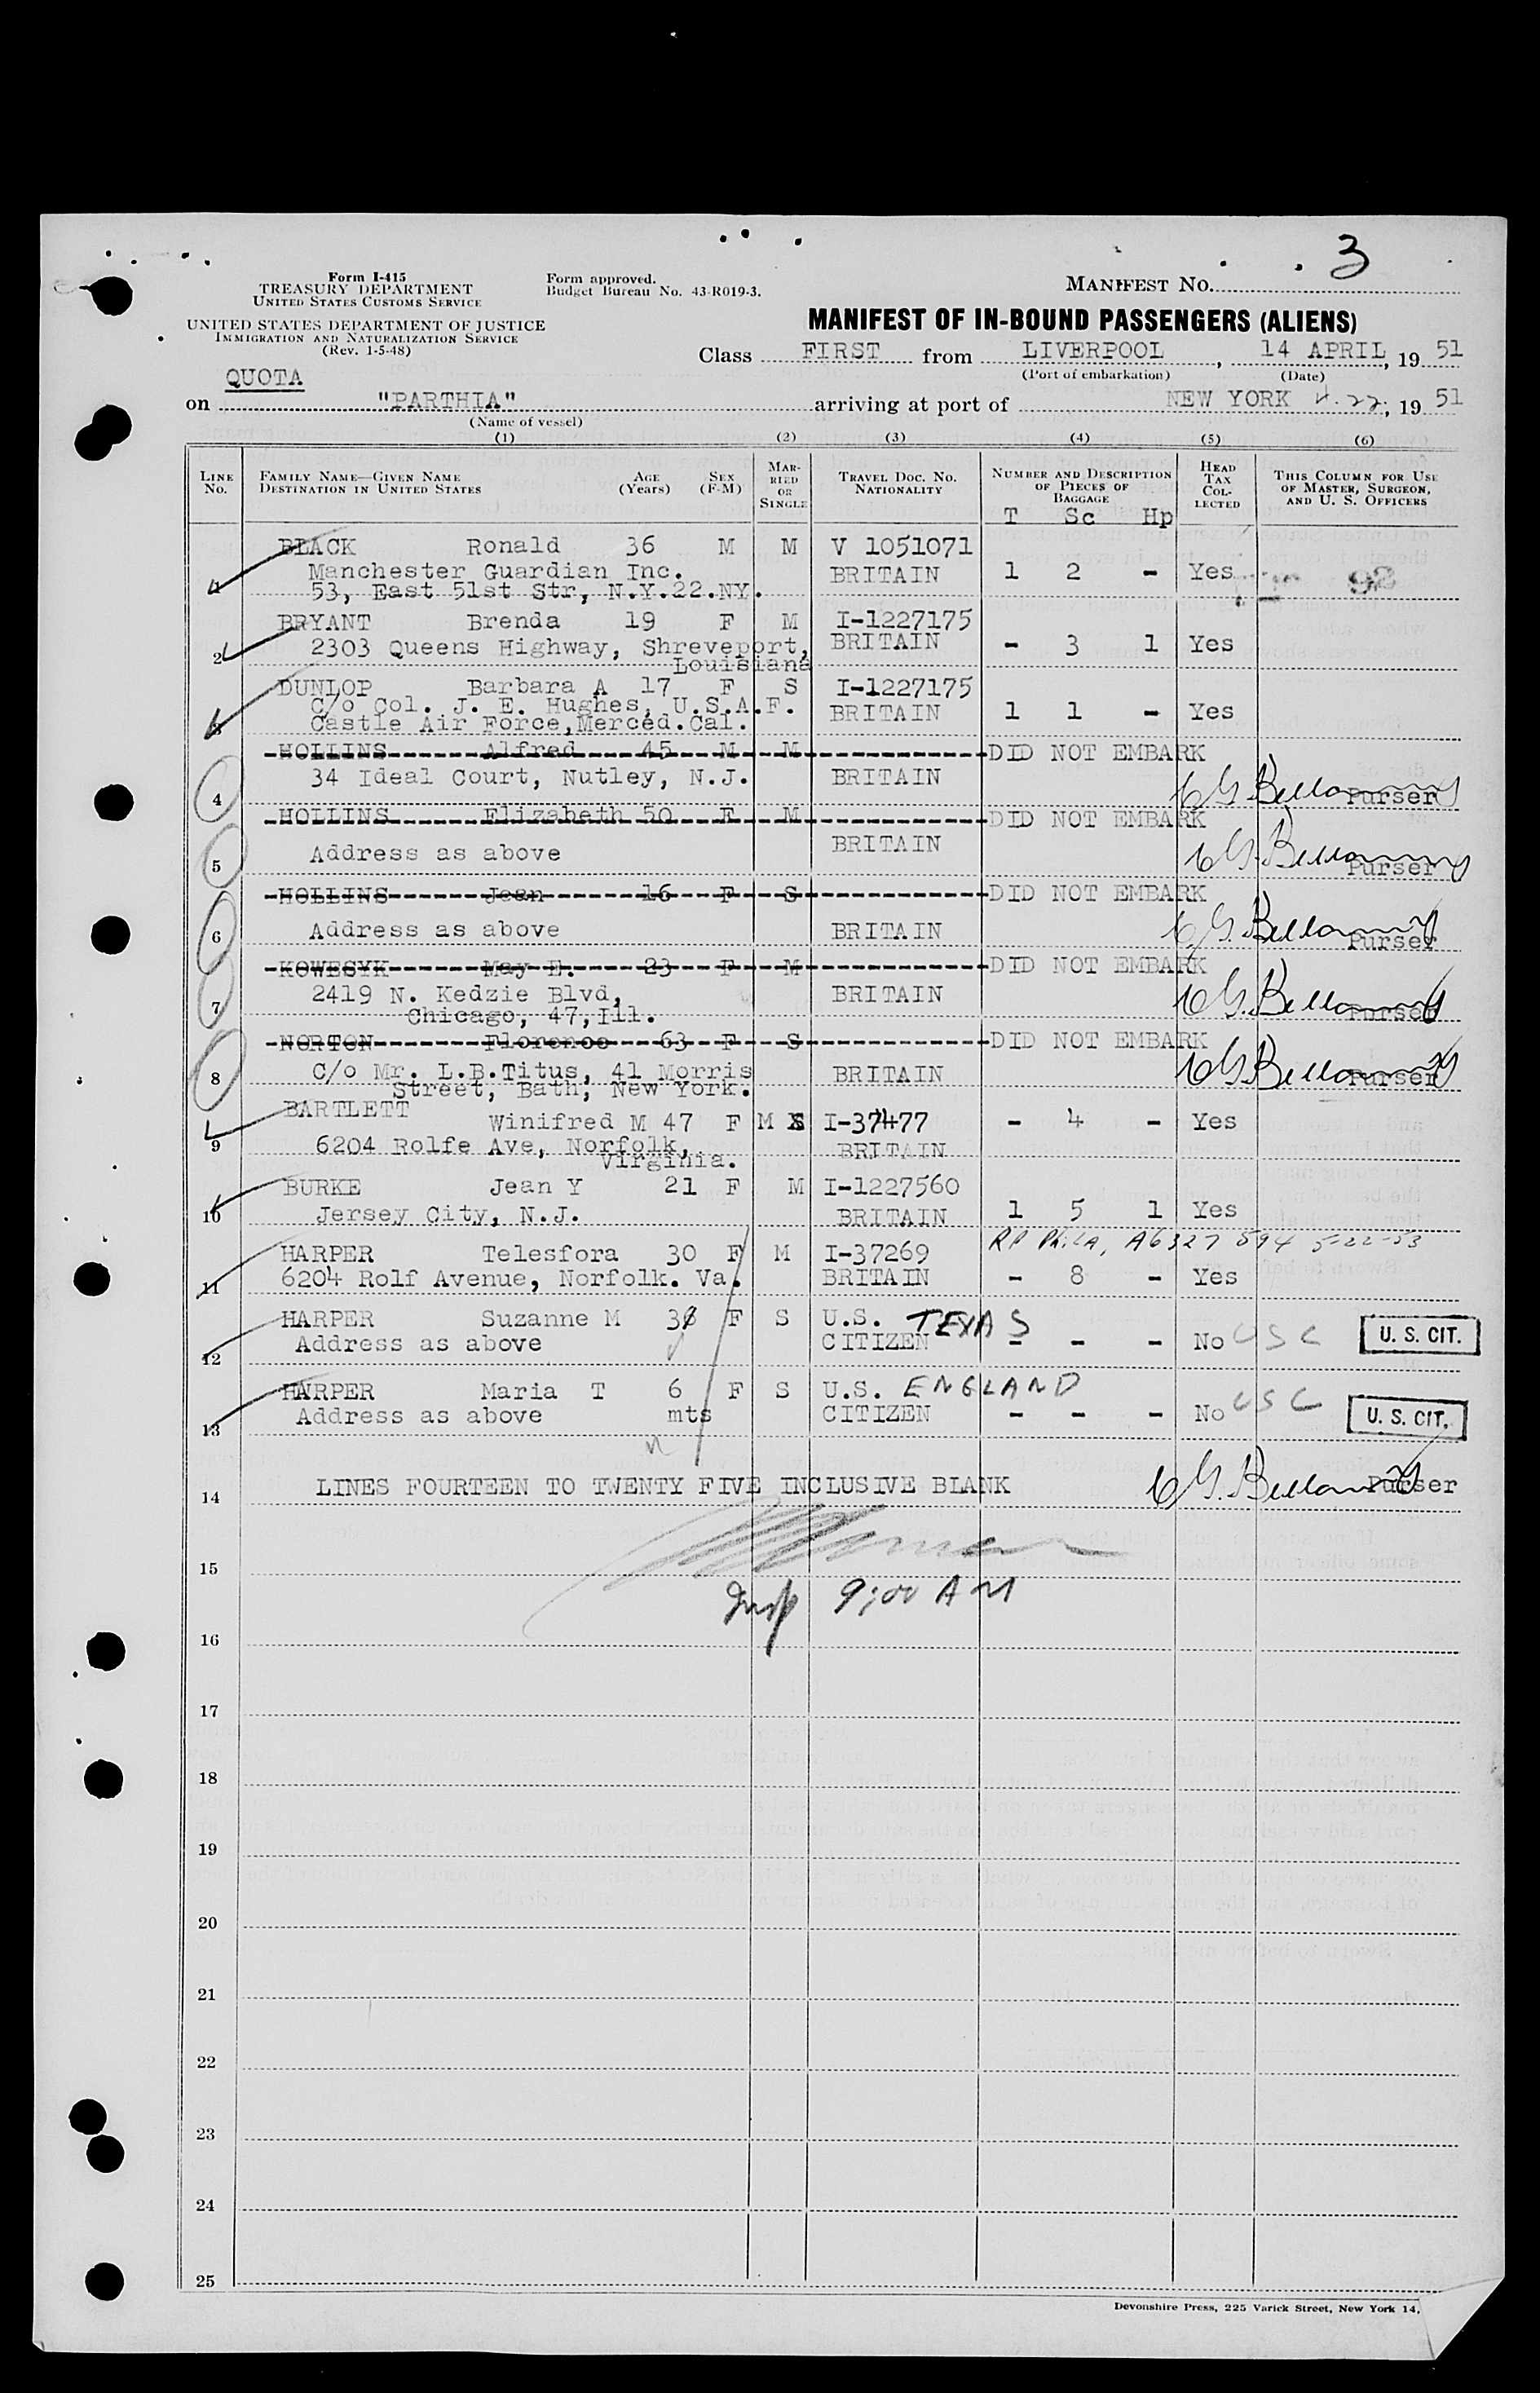 3
Form I-415
TREASURY DEPARTMENT
UNITED STATES CUSTOMS SERVICE
Form approved.
Budget Bureau No. 43-R019-3.
MANIFEST NO.
UNITED STATES DEPARTMENT OF JUSTICE
IMMIGRATION AND NATURALIZATION SERVICE
(Rev. 1-5-48)
MANIFEST OF IN-BOUND PASSENGERS (ALIENS)
Class FIRST from LIVERPOOL, 14 APRIL, 19 51
(Port of embarkation) (Date)
QUOTA
on "PARTHIA" arriving at port of NEW YORK 4.22, 19 51
(Name of vessel)
(1) (2) (3) (4) (5) (6)
LINE NO. FAMILY NAME—GIVEN NAME DESTINATION IN UNITED STATES AGE (Years) SEX (F-M) MARRIED OR SINGLE TRAVEL DOC. NO. NATIONALITY NUMBER AND DESCRIPTION OF PIECES OF BAGGAGE HEAD TAX COLLECTED THIS COLUMN FOR USE OF MASTER, SURGEON, AND U. S. OFFICERS
T Sc Hp
BLACK Ronald 36 M M V 1051071
Manchester Guardian Inc. BRITAIN 1 2 - Yes
1 53, East 51st Str, N.Y.22.NY.
BRYANT Brenda 19 F M I-1227175
2 2303 Queens Highway, Shreveport, BRITAIN - 3 1 Yes
Louisiana
DUNLOP Barbara A 17 F S I-1227175
C/o Col. J. E. Hughes, U.S.A.F. BRITAIN 1 1 - Yes
3 Castle Air Force,Merced.Cal.
HOLLINS Alfred 45 M M DID NOT EMBARK
34 Ideal Court, Nutley, N.J. BRITAIN
4 Purser
HOLLINS Elizabeth 50 F M DID NOT EMBARK
5 Address as above BRITAIN
Purser
HOLLINS Jean 16 F S DID NOT EMBARK
6 Address as above BRITAIN
Purser
KOWESYK May E. 23 F M DID NOT EMBARK
7 2419 N. Kedzie Blvd, BRITAIN
Chicago, 47,Ill. Purser
NORTON Florence 63 F S DID NOT EMBARK
8 C/o Mr. L.B.Titus, 41 Morris BRITAIN Purser
Street, Bath, New York.
BARTLETT
Winifred M 47 F M S I-37477 - 4 - Yes
9 6204 Rolfe Ave, Norfolk, BRITAIN
Virginia.
BURKE Jean Y 21 F M I-1227560
10 Jersey City, N.J. BRITAIN 1 5 1 Yes
RP Phila, A6327 594 5-22-53
HARPER Telesfora 30 F M I-37269
11 6204 Rolf Avenue, Norfolk. Va. BRITAIN - 8 - Yes
HARPER Suzanne M 3 F S U.S. TEXAS
12 Address as above CITIZEN - - - No USC U. S. CIT.
HARPER Maria T 6 F S U.S. ENGLAND
13 Address as above mts CITIZEN - - - No USC U. S. CIT.
14 LINES FOURTEEN TO TWENTY FIVE INCLUSIVE BLANK Purser
15
Insp 9:00 AM
16
17
18
19
20
21
22
23
24
25
Devonshire Press, 225 Varick Street, New York 14,